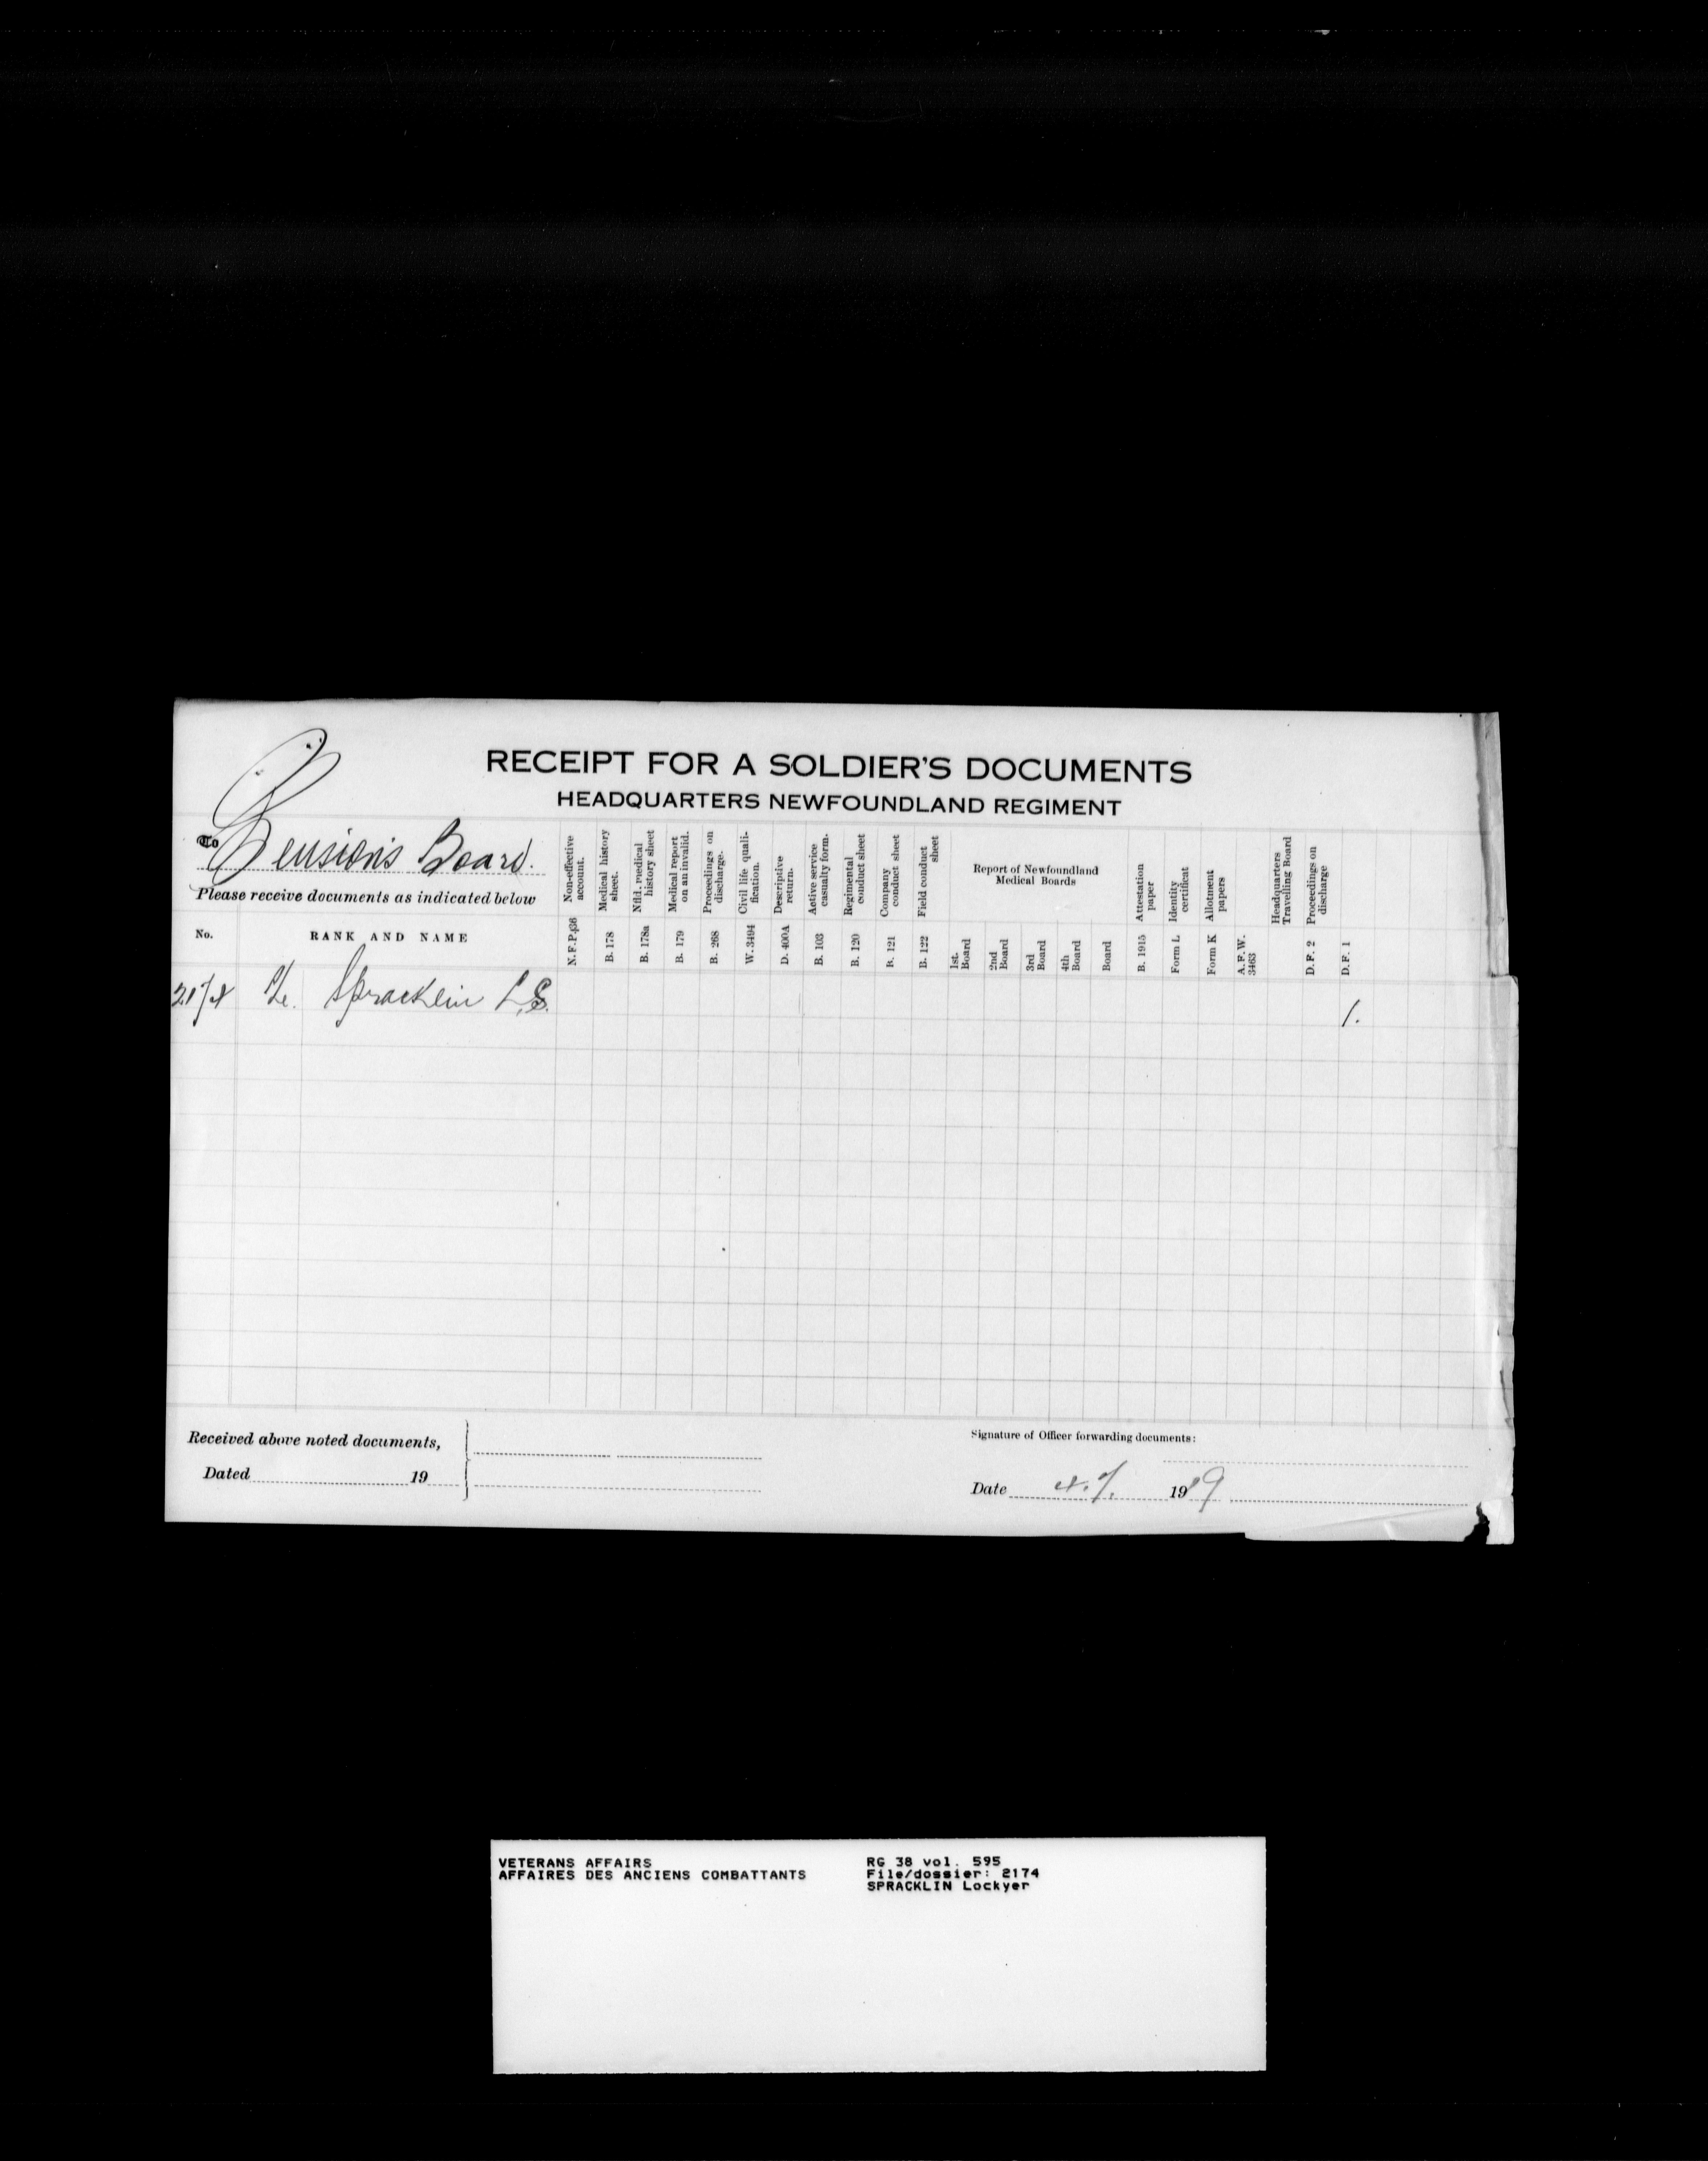 RECEIPT FOR A SOLDIER'S DOCUMENTS
HEADQUARTERS NEWFOUNDLAND REGIMENT
To Pensions Board.
Please receive documents as indicated below
No. RANK AND NAME
Non-effective account. N.F.P.436
Medical history sheet. B. 178
Nfld. medical history sheet B. 178a
Medical report on an invalid. B. 179
Proceedings on discharge. B. 268
Civil life quali-fication. W. 3494
Descriptive return. D. 400A
Active service casualty form. B. 103
Regimental conduct sheet B. 120
Company conduct sheet B. 121
Field conduct sheet B. 122
Report of Newfoundland
Medical Boards
1st. Board
2nd Board
3rd Board
4th Board
Board
Attestation paper B. 1915
Identity certificat Form L
Allotment papers Form K
A. F. W. 3463
Headquarters Travelling Board
Proceedings on discharge D. F. 2
D. F. 1
2174 Pte. Spracklin L.S. 1.
Received above noted documents,
Dated 19
Signature of Officer forwarding documents:
Date 4.7. 1919
VETERANS AFFAIRS
AFFAIRES DES ANCIENS COMBATTANTS
RG 38 vol. 595
File/dossier: 2174
SPRACKLIN Lockyer